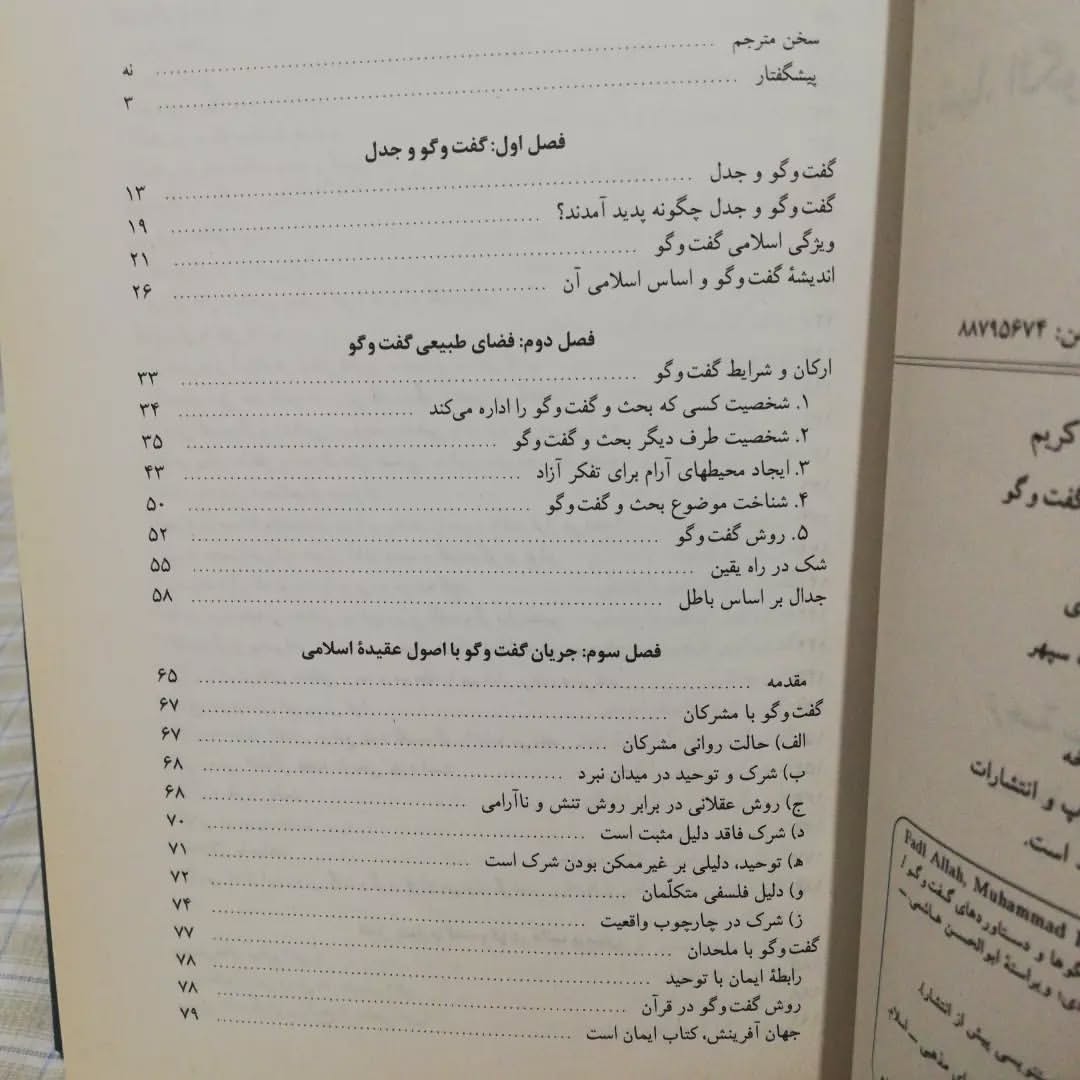 سخن مترجم ........ نه
پیشگفتار ........ ۳
فصل اول: گفت‌وگو و جدل
گفت‌وگو و جدل ........ ۱۳
گفت‌وگو و جدل چگونه پدید آمدند؟ ........ ۱۹
ویژگی اسلامی گفت‌وگو ........ ۲۱
اندیشهٔ گفت‌وگو و اساس اسلامی آن ........ ۲۶
فصل دوم: فضای طبیعی گفت‌وگو
ارکان و شرایط گفت‌وگو ........ ۳۳
۱. شخصیت کسی که بحث و گفت‌وگو را اداره می‌کند ........ ۳۴
۲. شخصیت طرف دیگر بحث و گفت‌وگو ........ ۳۵
۳. ایجاد محیطهای آرام برای تفکر آزاد ........ ۴۳
۴. شناخت موضوع بحث و گفت‌وگو ........ ۵۰
۵. روش گفت‌وگو ........ ۵۲
شک در راه یقین ........ ۵۵
جدال بر اساس باطل ........ ۵۸
فصل سوم: جریان گفت‌وگو با اصول عقیدهٔ اسلامی
مقدمه ........ ۶۵
گفت‌وگو با مشرکان ........ ۶۷
الف) حالت روانی مشرکان ........ ۶۷
ب) شرک و توحید در میدان نبرد ........ ۶۸
ج) روش عقلانی در برابر روش تنش و ناآرامی ........ ۶۸
د) شرک فاقد دلیل مثبت است ........ ۷۰
ه) توحید، دلیلی بر غیرممکن بودن شرک است ........ ۷۱
و) دلیل فلسفی متکلّمان ........ ۷۲
ز) شرک در چارچوب واقعیت ........ ۷۴
گفت‌وگو با ملحدان ........ ۷۷
رابطهٔ ایمان با توحید ........ ۷۸
روش گفت‌وگو در قرآن ........ ۷۸
جهان آفرینش، کتاب ایمان است ........ ۷۹
۸۸۷۹۵۶۷۴
کریم
گفت‌وگو
سپهر
و انتشارات
است.
Fadl Allah, Muhammad
و دستاوردهای گفت‌وگو /
ویراستهٔ ابوالحسن هاشمی. –
پیش از انتشار).
مذهبی – اسلام